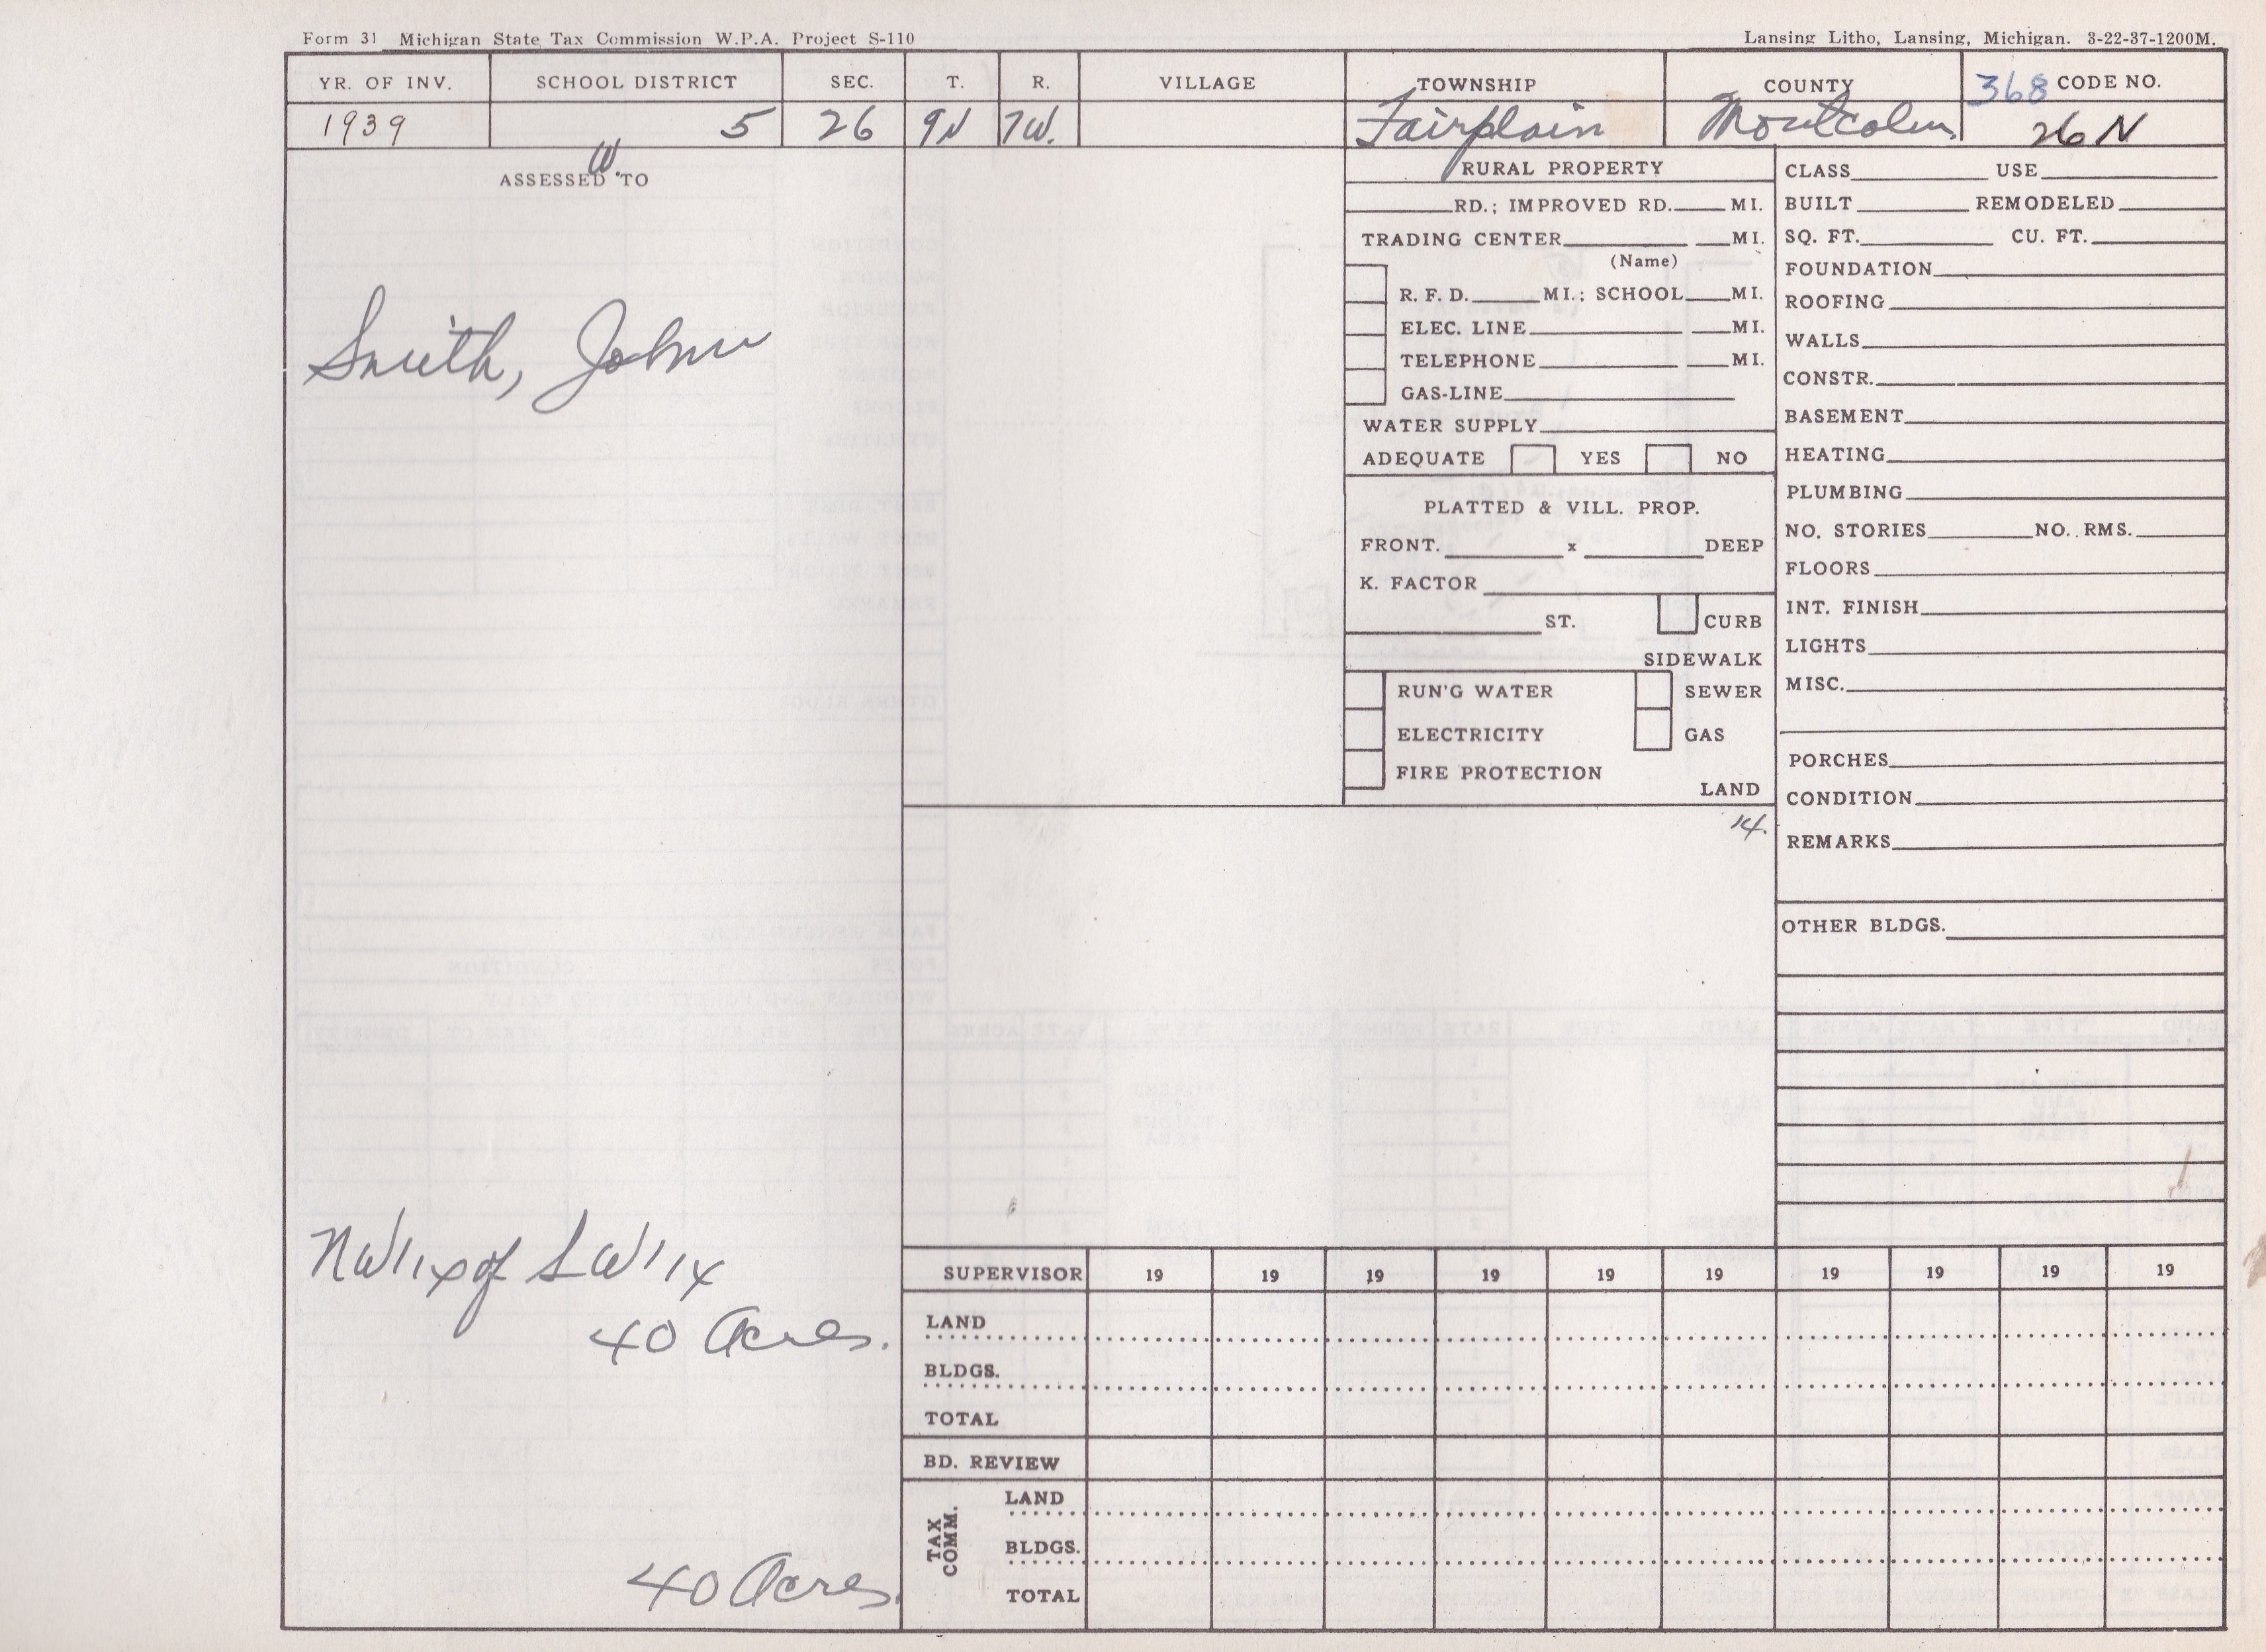 Form 31 Michigan State Tax Commission W.P.A. Project S-110
Lansing Litho, Lansing, Michigan. 3-22-37-1200M.
YR. OF INV. SCHOOL DISTRICT SEC. T. R. VILLAGE TOWNSHIP COUNTY 368 CODE NO.
1939 5 26 9N 7W. Fairplain Montcalm 26N
W.
ASSESSED TO
Smith, John
NW1/4 of SW1/4
40 Acres.
40 Acres.
RURAL PROPERTY
RD.; IMPROVED RD. MI.
TRADING CENTER MI.
(Name)
R. F. D. MI.; SCHOOL MI.
ELEC. LINE MI.
TELEPHONE MI.
GAS-LINE
WATER SUPPLY
ADEQUATE YES NO
PLATTED & VILL. PROP.
FRONT. x DEEP
K. FACTOR
ST. CURB
SIDEWALK
RUN'G WATER SEWER
ELECTRICITY GAS
FIRE PROTECTION
LAND
14.
CLASS USE
BUILT REMODELED
SQ. FT. CU. FT.
FOUNDATION
ROOFING
WALLS
CONSTR.
BASEMENT
HEATING
PLUMBING
NO. STORIES NO. RMS.
FLOORS
INT. FINISH
LIGHTS
MISC.
PORCHES
CONDITION
REMARKS
OTHER BLDGS.
SUPERVISOR 19 19 19 19 19 19 19 19 19 19
LAND
BLDGS.
TOTAL
BD. REVIEW
TAX COMM.
LAND
BLDGS.
TOTAL